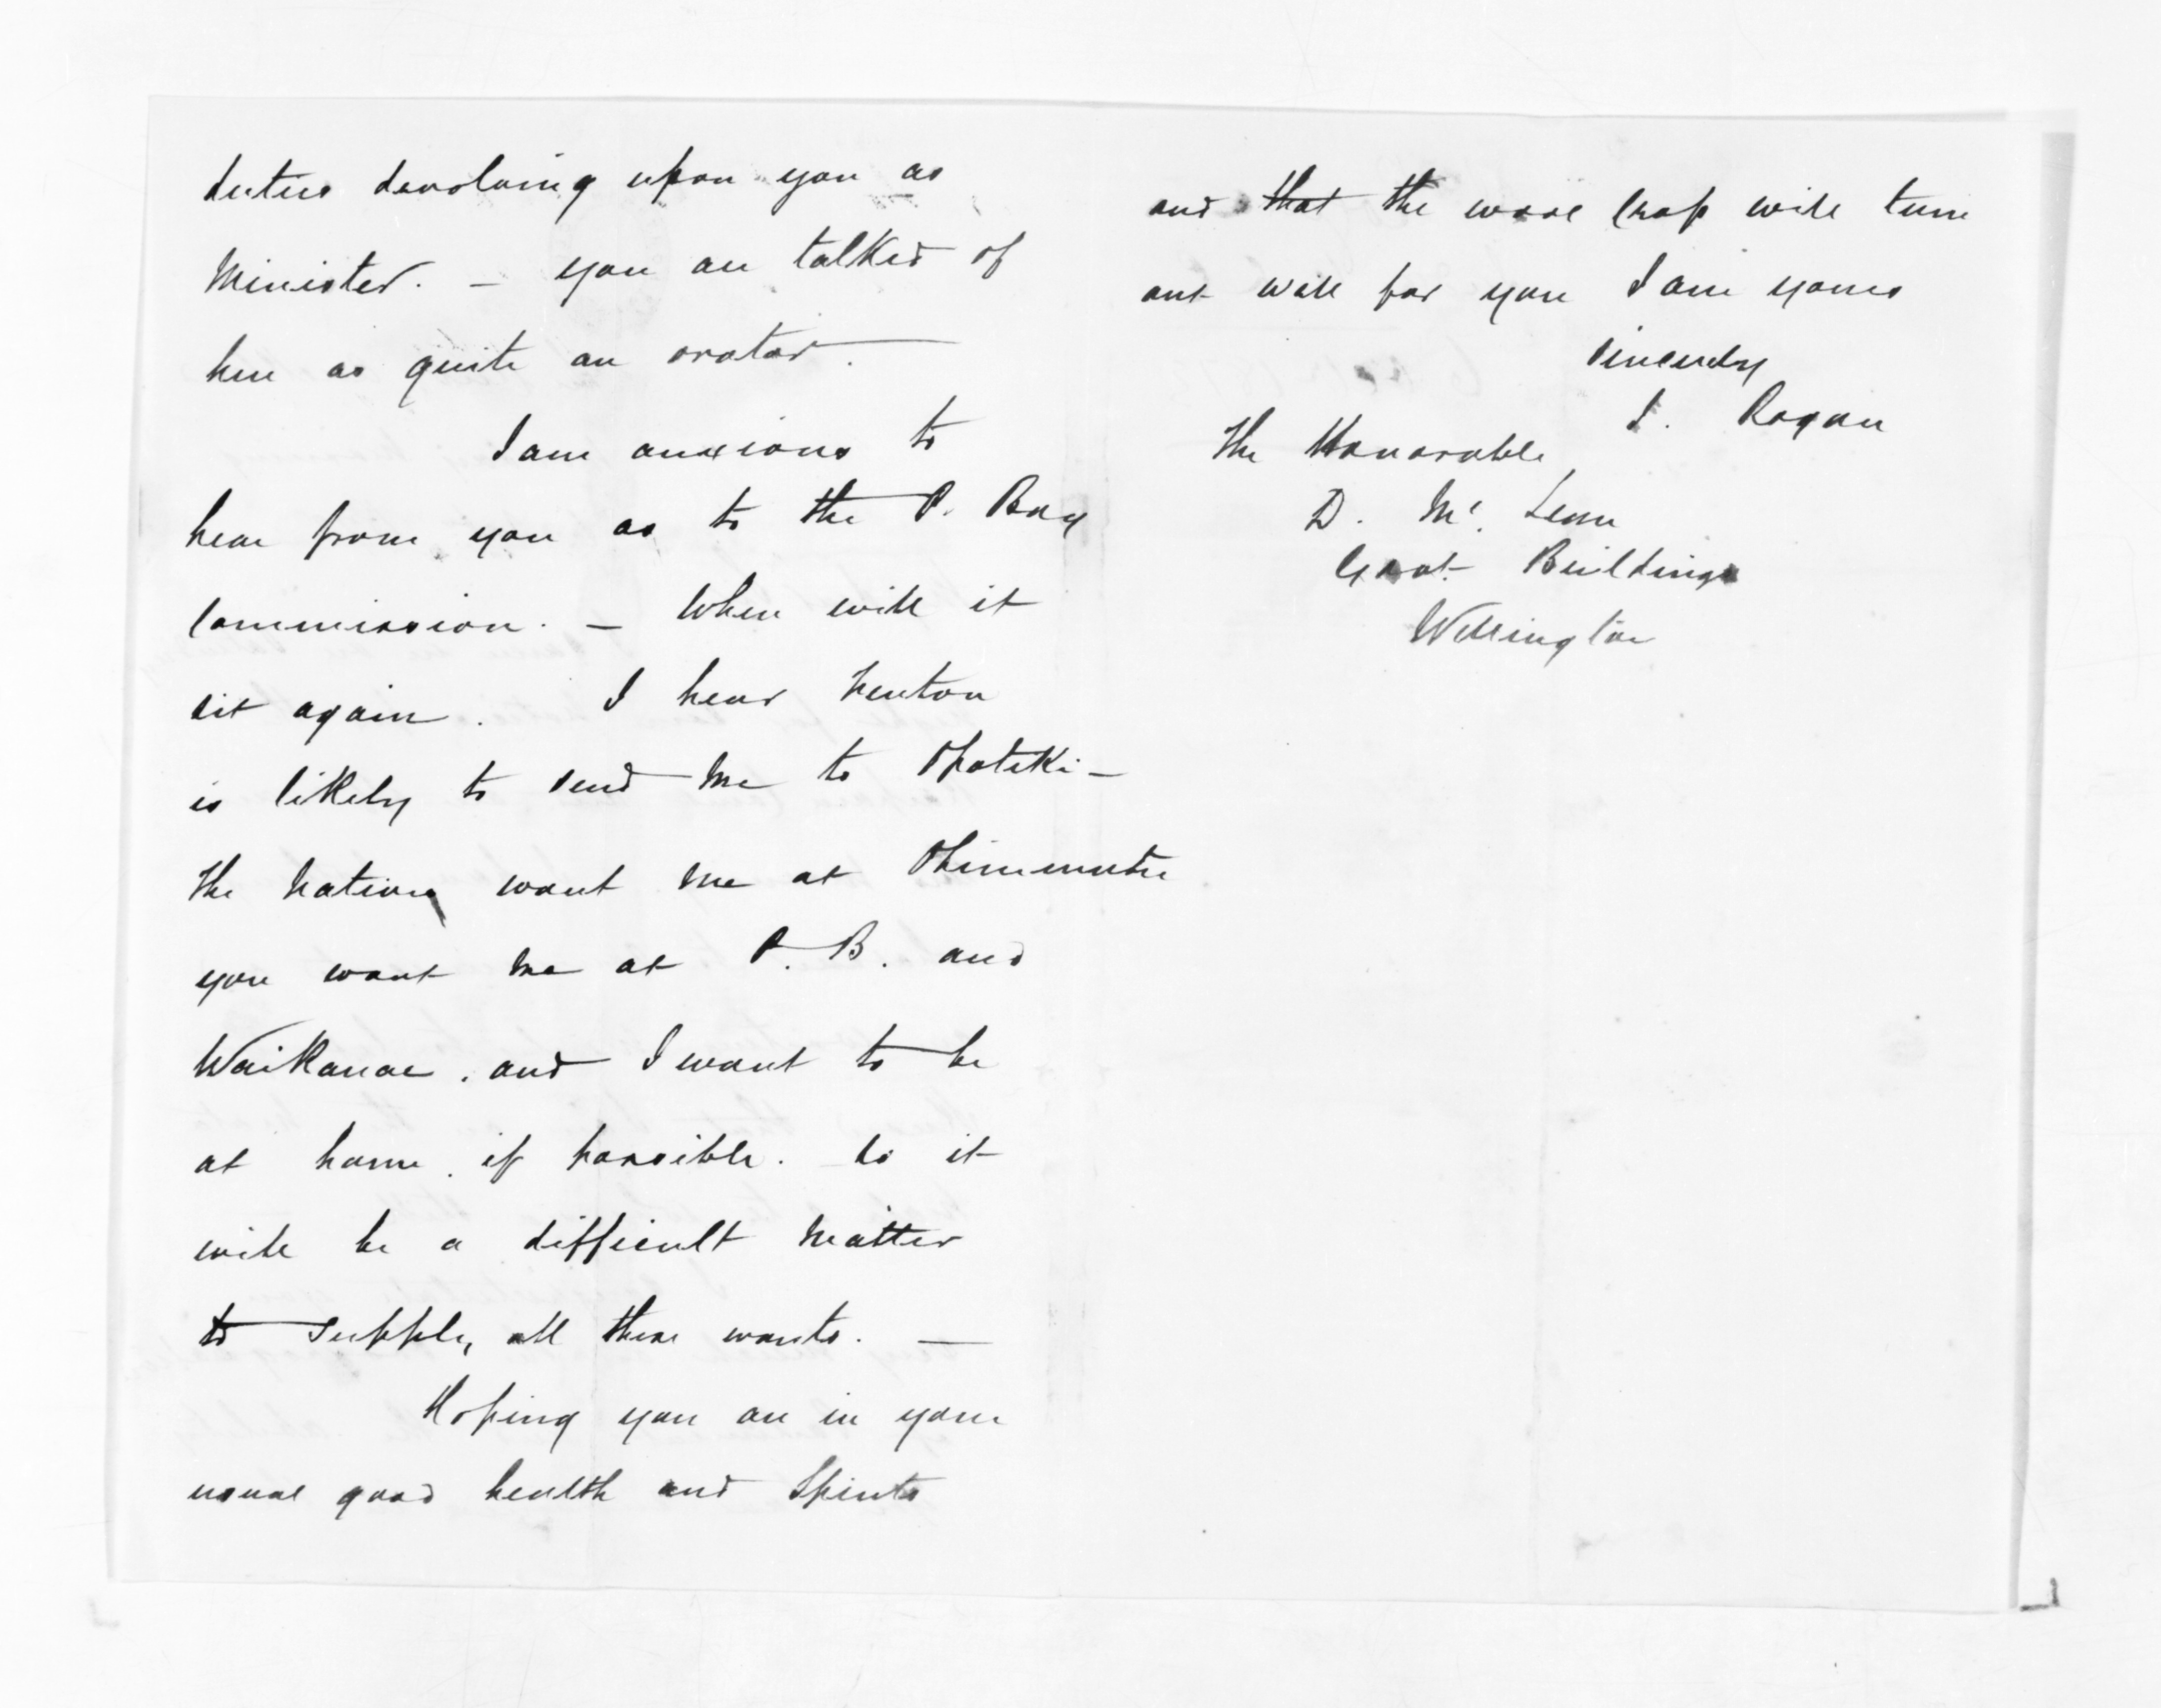 duties devolving upon you as
Minister. — you are talked of
here as quite an orator. —
I am anxious to
hear from you as to the P. Bay
Commission. — When will it
sit again. I hear Fenton
is likely to send me to Opotiki —
the natives want me at Ohinemutu
you want me at P. B. and
Waikanae. and I want to be
at home. if possible. — So it
will be a difficult matter
to supply all these wants. —
Hoping you are in your
usual good health and spirits
and that the wool crop will turn
out well for you I am yours
sincerely
J. Rogan
The Honorable
D. Mc. Lean
Govt. Buildings
Wellington